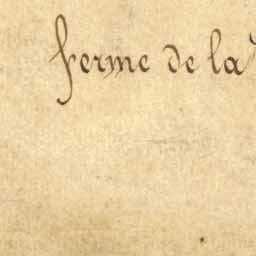 ferme de la